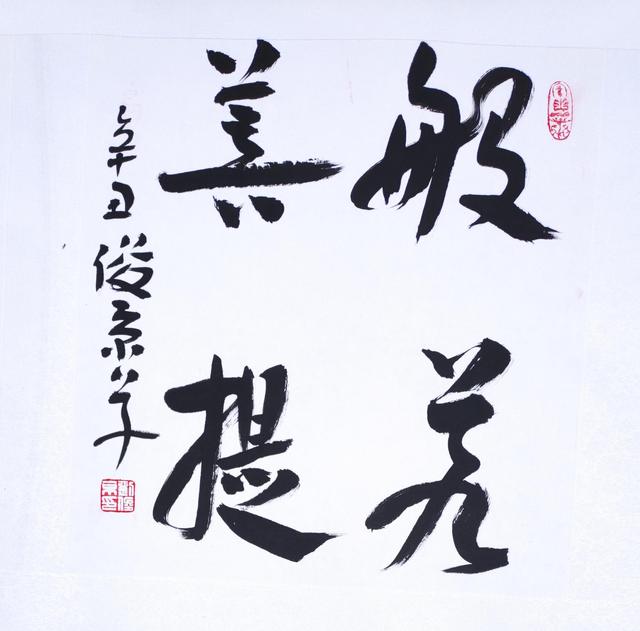 般若
菩提
辛丑 俊京草